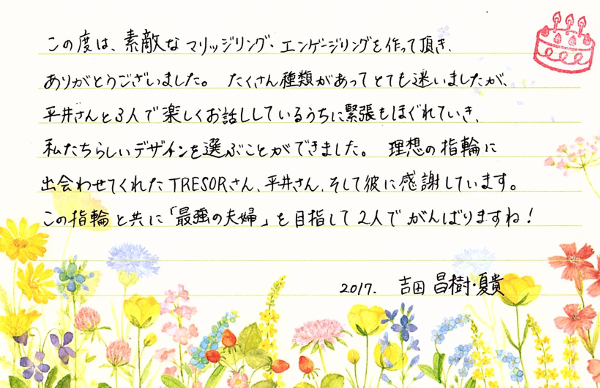 この度は、素敵なマリッジリング・エンゲージリングを作って頂き、
ありがとうございました。 たくさん種類があってとても迷いましたが、
平井さんと3人で楽しくお話ししているうちに緊張もほぐれていき、
私たちらしいデザインを選ぶことができました。 理想の指輪に
出会わせてくれたTRESORさん、平井さん、そして彼に感謝しています。
この指輪と共に「最強の夫婦」を目指して2人でがんばりますね!
2017. 吉田 昌樹・夏貴